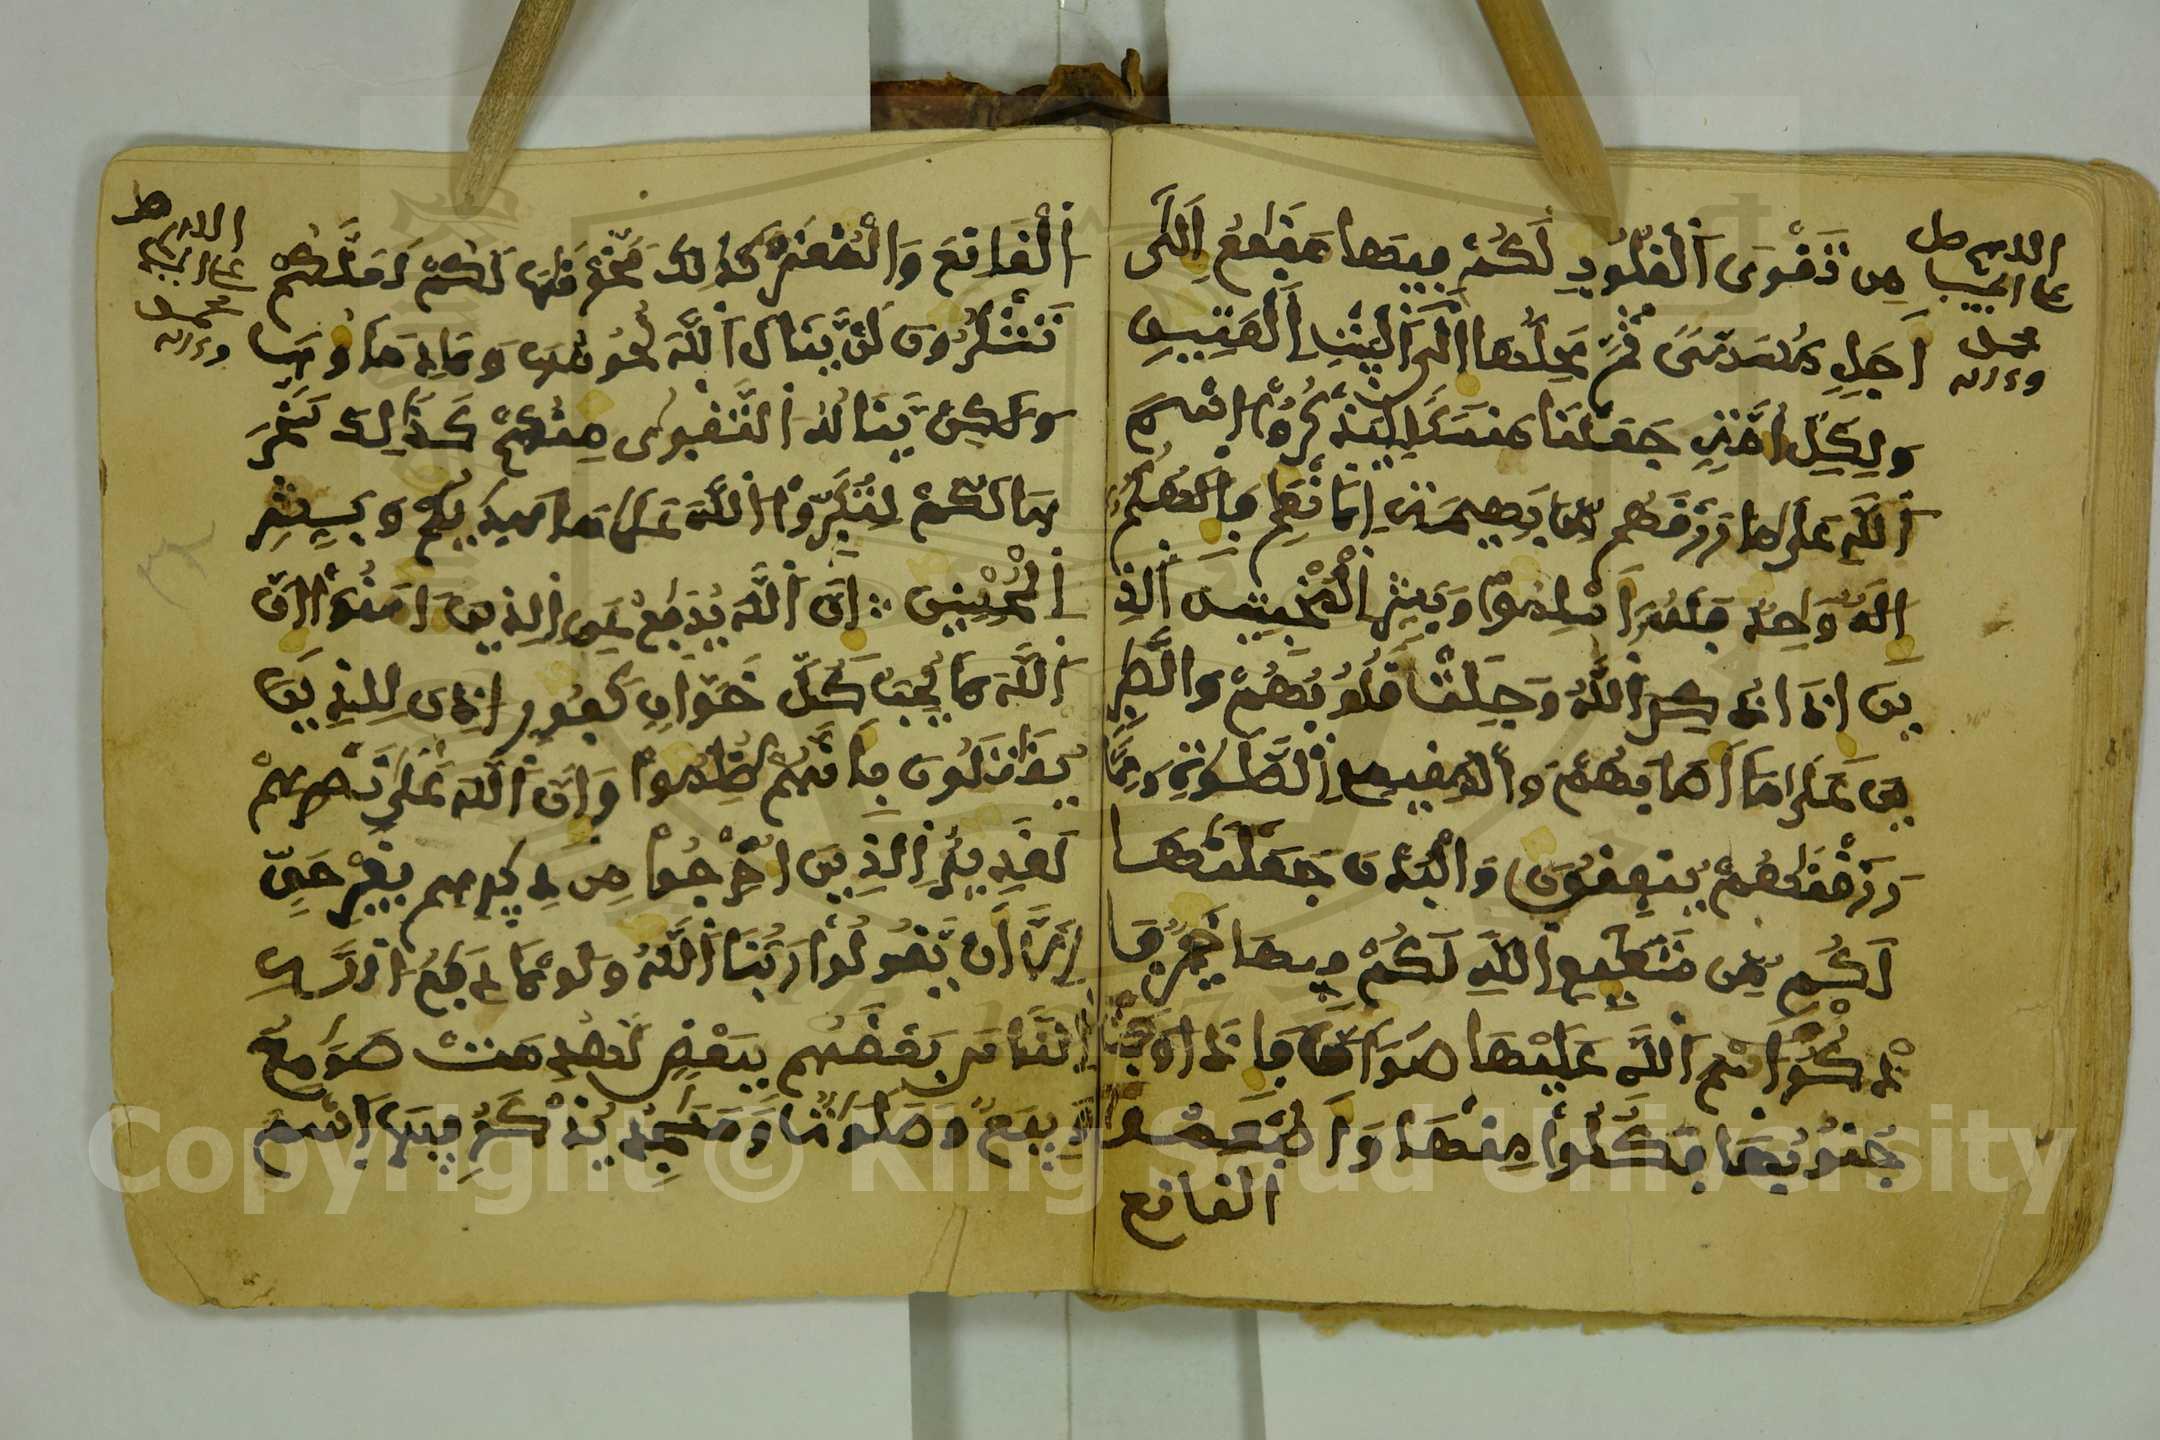 اللهم صل
على الحبيب
محمد
وءاله
مِن تَقْوَى اَلْقُلُوبِ لَكُمْ فِيهَا مَنَٰفِعُ إِلَىٰ
أَجَلٖ مُّسَمّىٗ ثُمَّ مَحِلُّهَا إِلَى اَلْبَيْتِ اِلْعَتِيقِ
وَلِكُلِّ أُمَّةٖ جَعَلْنَا مَنسَكاٗ لِّيَذْكُرُواْ اسْمَ
اَللَّهِ عَلَىٰ مَا رَزَقَهُم مِّنۢ بَهِيمَةِ اِلَانْعَٰمِ فَإِلَٰهُكُمُۥ
إِلَٰهٞ وَٰحِدٞ فَلَهُۥ أَسْلِمُواْ وَبَشِّرِ اِلْمُخْبِتِينَ اَلذِ
ينَ إِذَا ذُكِرَ اَللَّهُ وَجِلَتْ قُلُوبُهُمْ وَالصَّٰبِرِ
ينَ عَلَىٰ مَا أَصَابَهُمْ وَالْمُقِيمِے اِلصَّلَوٰةِ وَمِمَّا
رَزَقْنَٰهُمْ يُنفِقُونَ وَالْبُدْنَ جَعَلْنَٰهَا
لَكُم مِّن شَعَٰٓئِرِ اِللَّهِ لَكُمْ فِيهَا خَيْرٞ فَا
ذْكُرُواْ اسْمَ اَللَّهِ عَلَيْهَا صَوَآفَّ فَإِذَا وَجَبَتْ
جُنُوبُهَا فَكُلُواْ مِنْهَا وَأَطْعِمُواْ
القانع
اللهم صل
على الحبيب
محمد
وءاله
اَلْقَانِعَ وَالْمُعْتَرَّ كَذَٰلِكَ سَخَّرْنَٰهَا لَكُمْ لَعَلَّكُمْ
تَشْكُرُونَ لَنْ يَّنَالَ اَللَّهَ لُحُومُهَا وَلَا دِمَآؤُهَا
وَلَٰكِنْ يَّنَالُهُ اُلتَّقْوَىٰ مِنكُمْ كَذَٰلِكَ سَخَّرَ
هَا لَكُمْ لِتُكَبِّرُواْ اَللَّهَ عَلَىٰ مَا هَدَىٰكُمْ وَبَشِّرِ
اِلْمُحْسِنِينَ إِنَّ اَللَّهَ يُدَٰفِعُ عَنِ اِلذِينَ ءَامَنُواْ إِنَّ
اَللَّهَ لَا يُحِبُّ كُلَّ خَوَّانٖ كَفُورٍ أُذِنَ لِلذِينَ
يُقَٰتَلُونَ بِأَنَّهُمْ ظُلِمُواْ وَإِنَّ اَللَّهَ عَلَىٰ نَصْرِهِمْ
لَقَدِيرٌ اِلذِينَ أُخْرِجُواْ مِن دِيَٰرِهِم بِغَيْرِ حَقٍّ
إِلَّا أَنْ يَّقُولُواْ رَبُّنَا اَللَّهُ وَلَوْلَا دِفَٰعُ اُللَّهِ
اِلنَّاسَ بَعْضَهُم بِبَعْضٖ لَهُدِمَتْ صَوَٰمِعُ
وَبِيَعٞ وَصَلَوَٰتٞ وَمَسَٰجِدُ يُذْكَرُ فِيهَا اَسْمُ